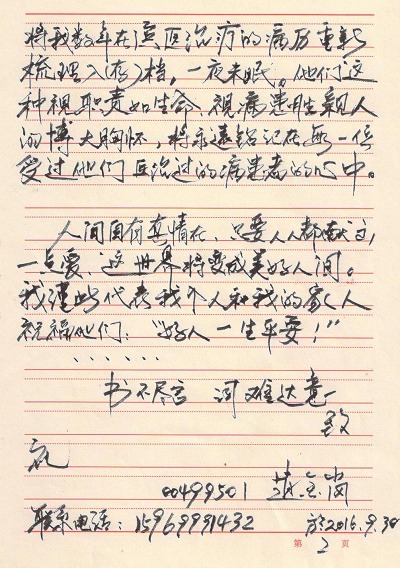 将我数年在滨医治疗的病历重新
梳理入(存)档。一夜未眠。他们这
种视职责如生命、视病患胜亲人
的博大胸怀，将永远铭记在每一位
受过他们医治过的病患者的心中。
人间自有真情在，只要人人都献出
一点爱、这世界将变成美好人间。
我谨此代表我个人和我的家人
祝福他们：“好人一生平安！”
······
书不尽言 词难达意
致
礼
00499501
联系电话：15969991432 於2016.9.30
第 2 页